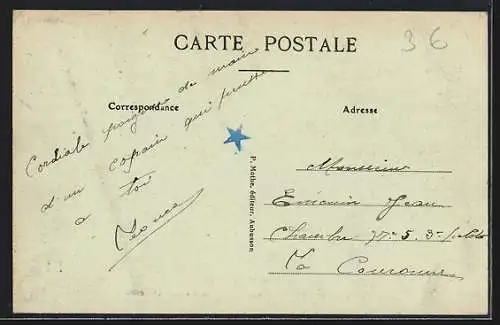 CARTE POSTALE
36
Correspondance
Adresse
Cordiale poignée de main
d'un copain qui pense
a toi
P. Mothe, éditeur, Aubusson
Monsieur
Jean
Chambre N° 5. 3e
La Couronne